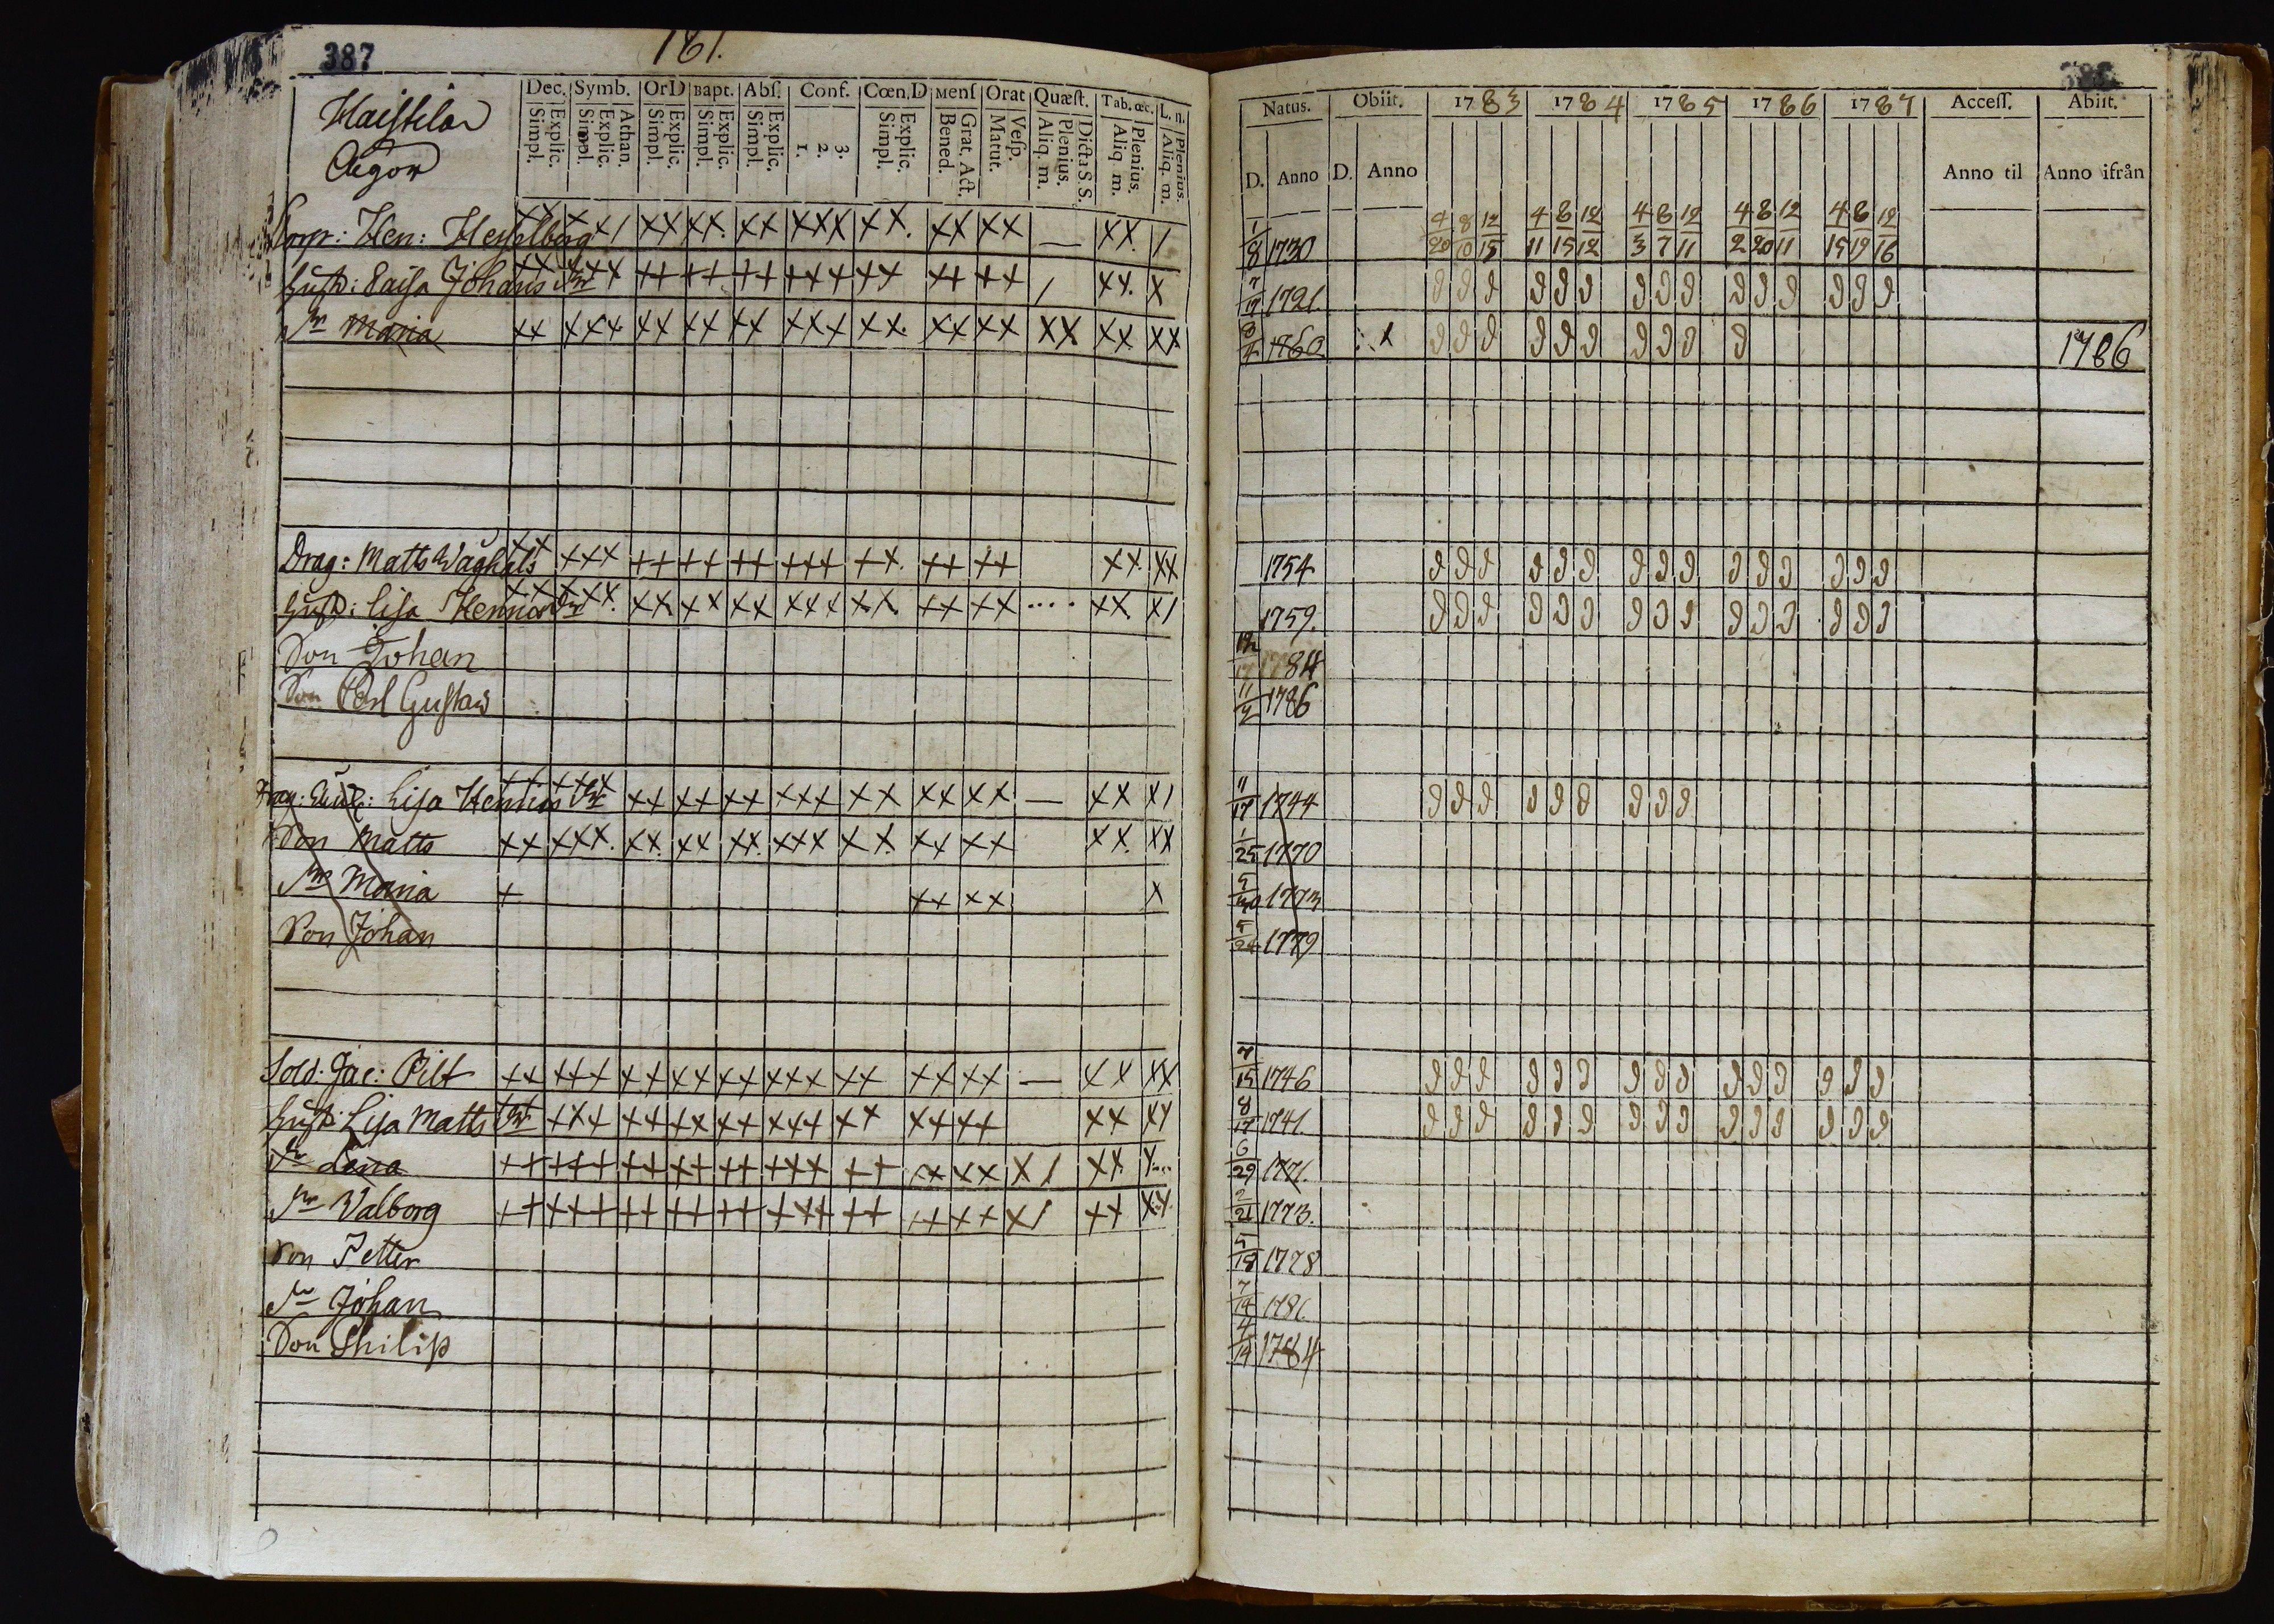 387
181.
Haistila
Ägor
Dec. Symb. OrD Bapt. Abſ. Conf. Cœn.D Menſ Orat Quæſt. Tab. œc. L. n.
Explic. Simpl. Athan. Explic. Simpl. Explic. Simpl. Explic. Simpl. Explic. Simpl. 3. 2. 1. Explic. Simpl. Grat. Act. Bened. Veſp. Matut. Dicta S.S. Plenius. Aliq. m. Plenius. Aliq. m. Plenius. Aliq. m.
Korp: Hen: Hesselberg
Hust: Caisa Johans dr
dr Maria
Drag: Matts Waghals
Hust: Lisa Henrics dr
Son Johan
Son Carl Gustaw
Drag: Enk: Lisa Henrics dr
Son Matts
dr Maria
Son Johan
Sold: Jac: Pilt
Hust: Lisa Matts dr
dr Lena
dr Valborg
Son Petter
Johan
Son Philip
Natus. Obiit. 1783 1784 1785 1786 1787 Acceſſ. Abiit.
D. Anno D. Anno Anno til Anno ifrån
4 8 12 4 8 12 4 8 12 4 8 12 4 8 12
1/8 1730 20 10 15 11 15 12 3 7 11 2 20 11 15 19 16
7/17 1721.
8/4 1760 1786
1754
1759.
12/17 1784
11/2 1786
11/17 1744
1/25 1770
5/30 1773
5/24 1779
7/15 1746
8/17 1741
6/29 1771.
2/21 1773.
5/18 1778
7/14 1781.
4/19 1784